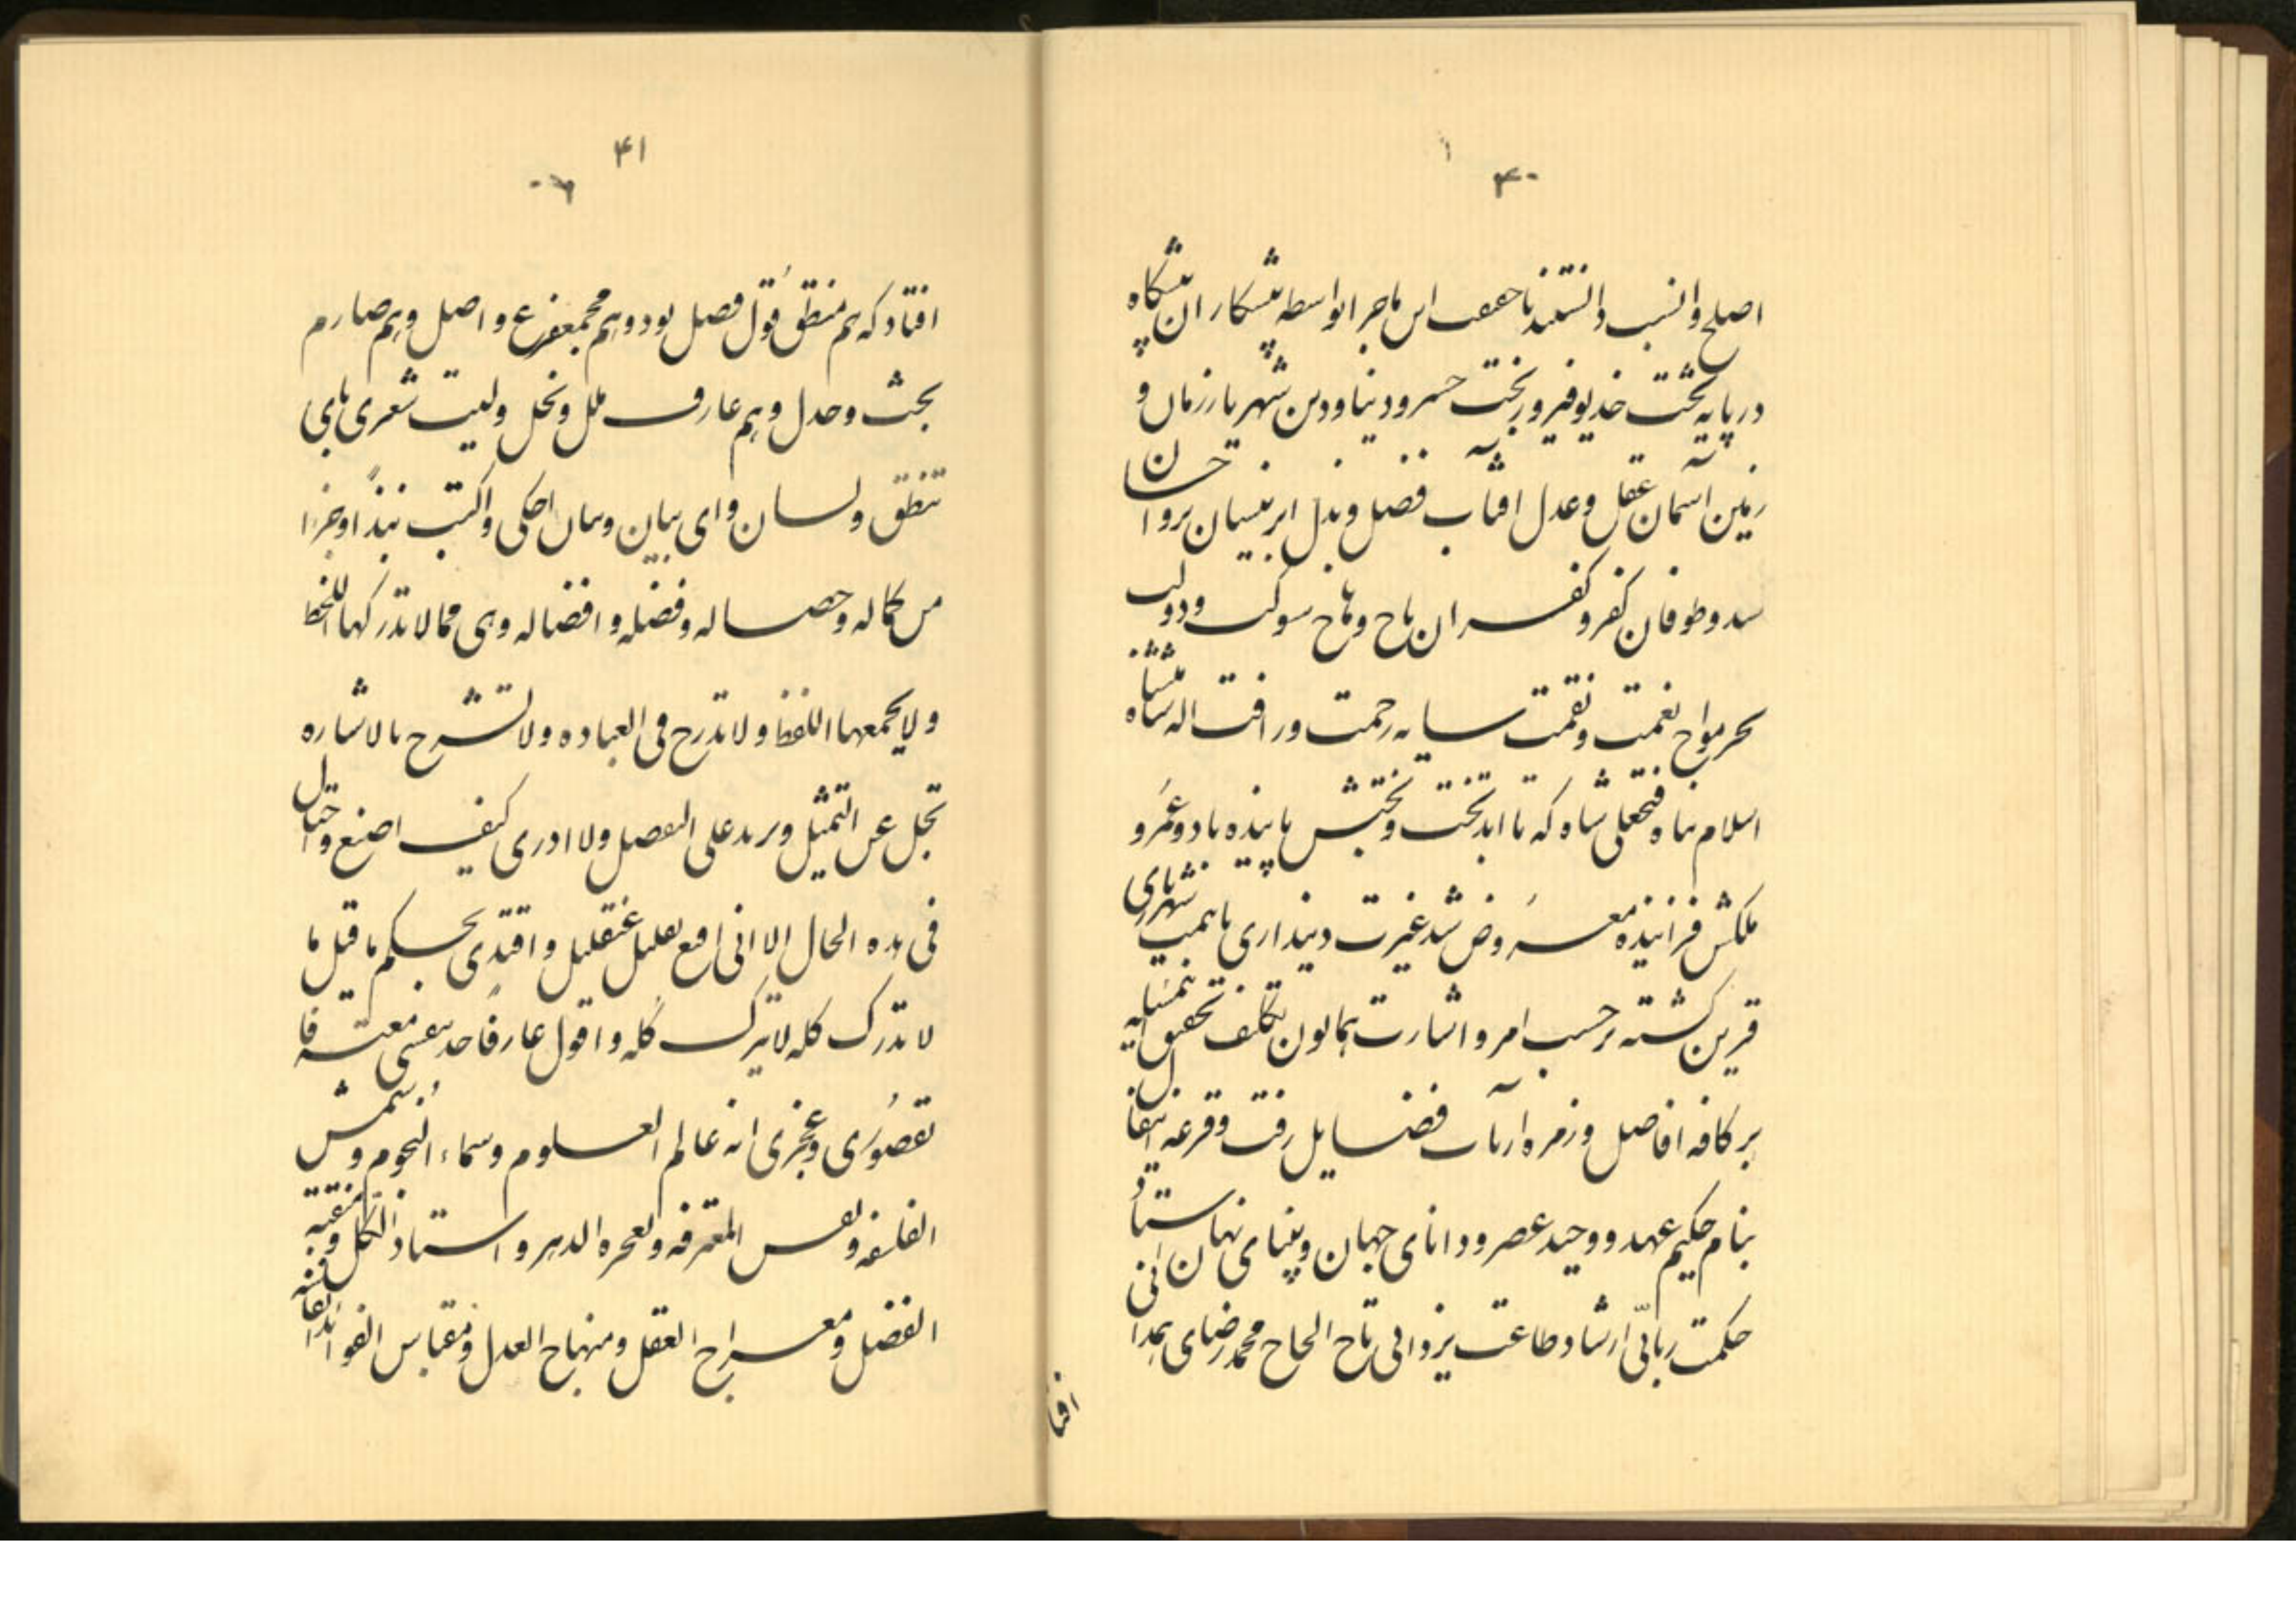 ۴۰
اصلح و انسب دانستند تا حقیقت این ماجرا بواسطه پیشکاران پیشگاه
در پایه تخت خدیو فیروزبخت خسرو دنیا و دین شهریار زمان و
زمین آسمان عقل و عدل آفتاب فضل و بذل ابر نیسان بر و احسان
سد و طوفان کفر و کفران تاج و هاج شوکت و دولت
بحر مواج نعمت و نقمت سایه رحمت و رافت اله شاهنشاه
اسلام پناه فتحعلی شاه که تا ابد تخت و بختش پاینده باد و عمر و
ملکش فزاینده معروض شد غیرت دینداری با همت شهریاری
قرین گشته بر حسب امر و اشارت همایون تکلف تحقیق این مسئله
بر کافه افاضل و زمره ارباب فضایل رفت و قرعه اتفاق
بنام حکیم عهد و وحید عصر و دانای جهان و بینای نهان استاد
حکمت ربانی ارشاد طاعت یزدانی تاج الحاج محمد رضای همدانی
افتا
۴۱
افتاد که هم منطق قول فصل بود و هم مجمع فرع و اصل و هم صارم
بحث و جدل و هم عارف ملل و نحل ولیت شعری بای
تنطق ولسان وای بیان وبنان احکی واکتب نبذا وجزا
من کماله وخصاله وفضله وافضاله وهی مما لا تدرکها اللحظ
ولا یجمعها اللفظ ولا تدرج فی العباده ولا تشرح بالاشاره
تجل عن التمثیل ویزید علی التفصیل ولا ادری کیف اصنع واحتال
فی هذه الحال الا انی اقنع بقلیل عن قلیل واقتدی بحکم ما قیل ما
لا تدرک کله لا یترک کله واقول عارفا حد نفسی معترفا
بقصوری وعجزی انه عالم العلوم وسماء النجوم وشمس
الفلسفه ونفس المعرفه واعجوبه الدهر واستاذ الکل ومنقبه
الفضل ومعراج العقل ومنهاج العدل ومقباس الفوائد